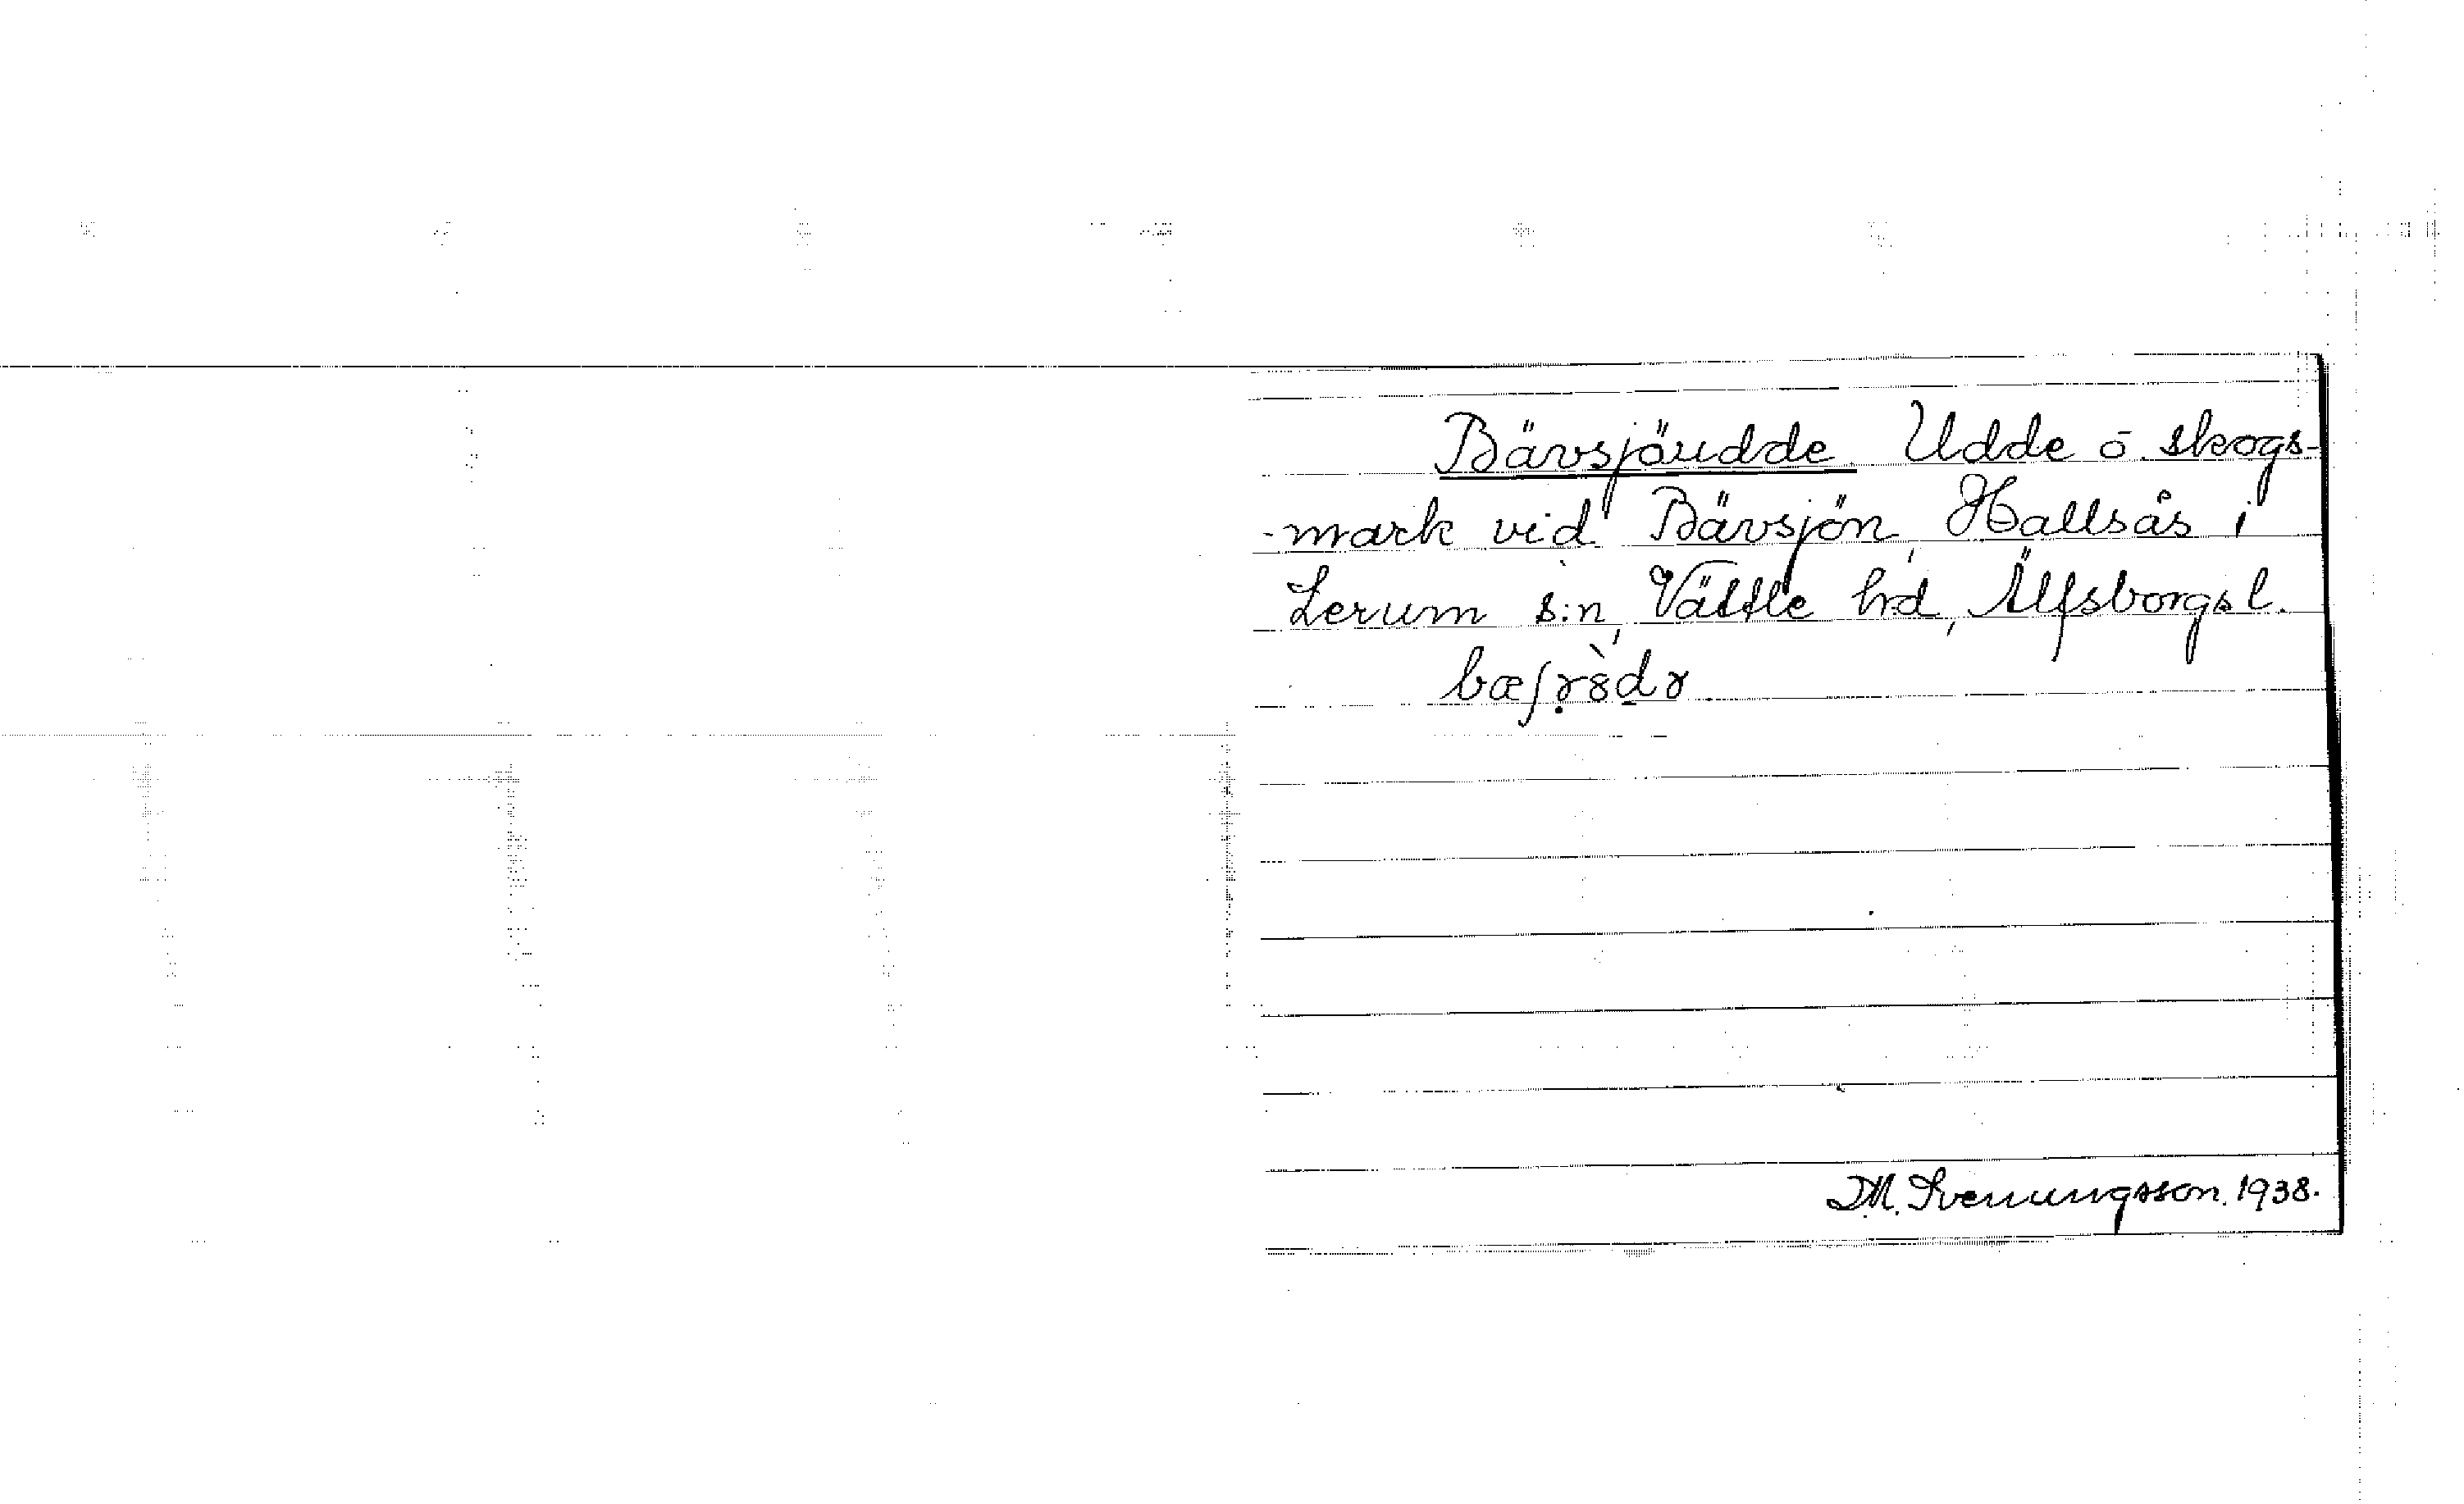 Bävsjöudde. Udde o. skogs-
-mark vid Bävsjön, Hallsås i
Lerum s:n, Vättle hd, Älfsborgs l.
M. Svenungsson. 1938.